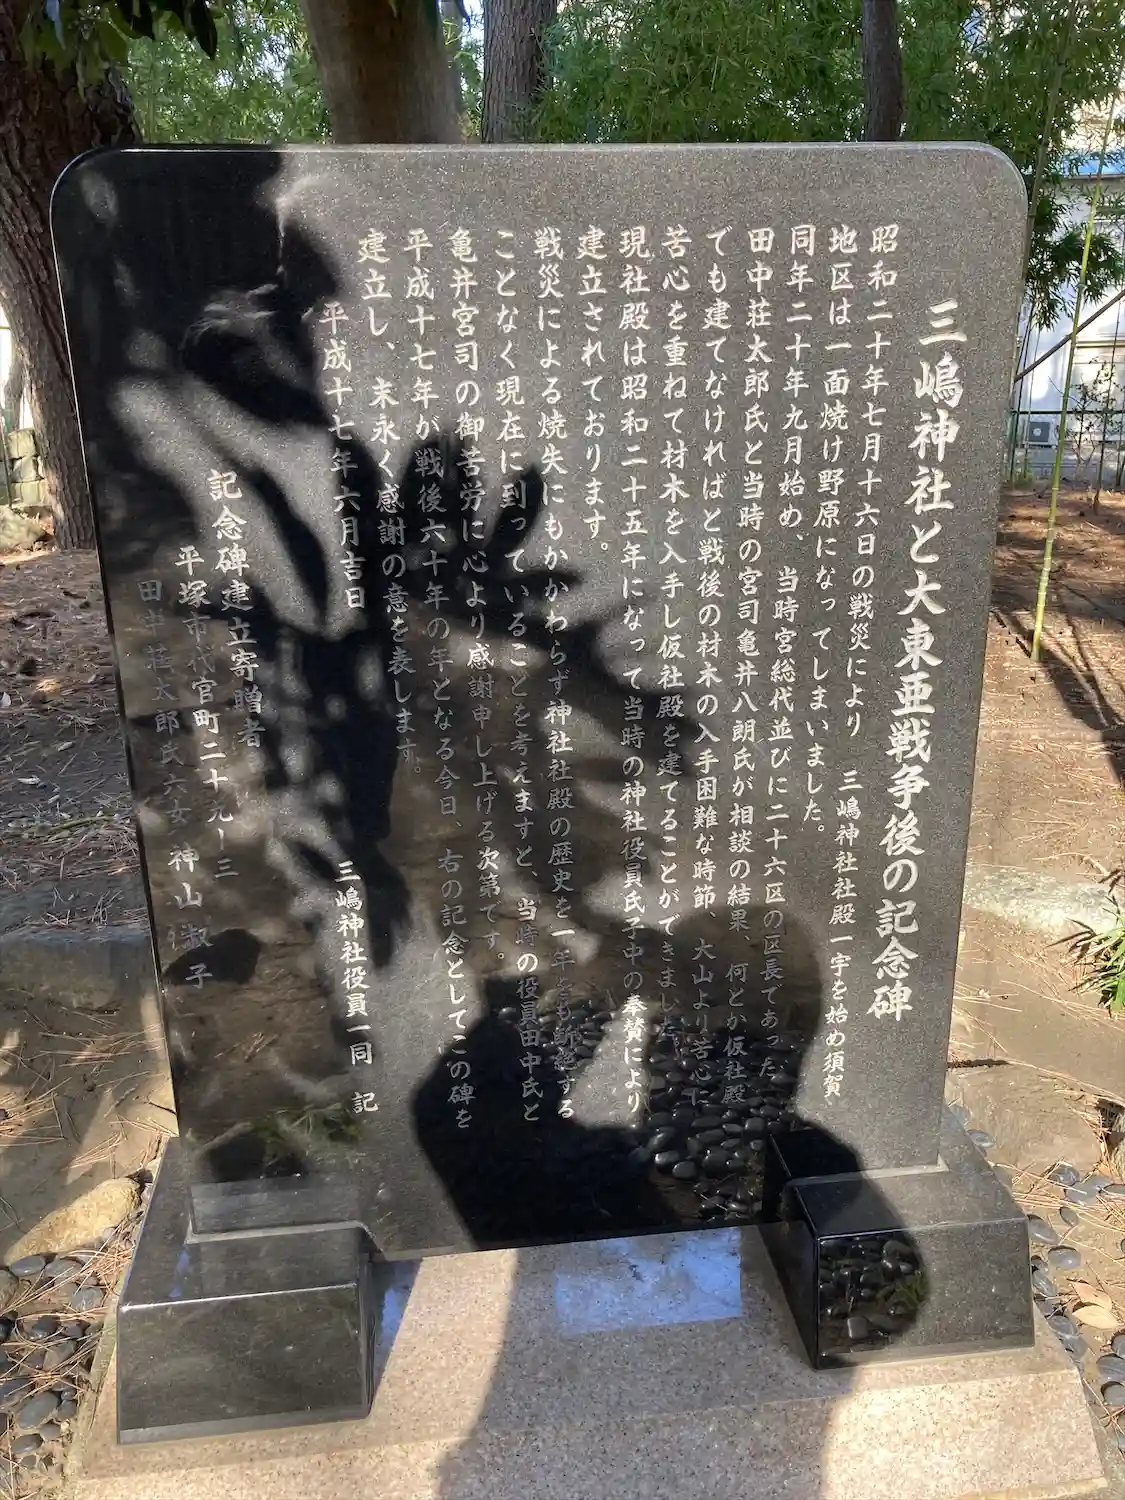 三嶋神社と大東亜戦争後の記念碑
昭和二十年七月十六日の戦災により 三嶋神社社殿一宇を始め須賀
地区は一面焼け野原になってしまいました。
同年二十年九月始め、当時宮総代並びに二十六区の区長であった
田中荘太郎氏と当時の宮司亀井八朗氏が相談の結果、何とか仮社殿
でも建てなければと戦後の材木の入手困難な時節、大山より苦心に
苦心を重ねて材木を入手し仮社殿を建てることができました。
現社殿は昭和二十五年になって当時の神社役員氏子中の奉賛により
建立されております。
戦災による焼失にもかかわらず神社社殿の歴史を一年とも断絶する
ことなく現在に到っていることを考えますと、当時の役員田中氏と
亀井宮司の御苦労に心より感謝申し上げる次第です。
平成十七年が戦後六十年の年となる今日、右の記念としてこの碑を
建立し、末永く感謝の意を表します。
平成十七年六月吉日
三嶋神社役員一同 記
記念碑建立寄贈者
平塚市代官町二十九ー三
田中荘太郎氏六女 神山 淑子